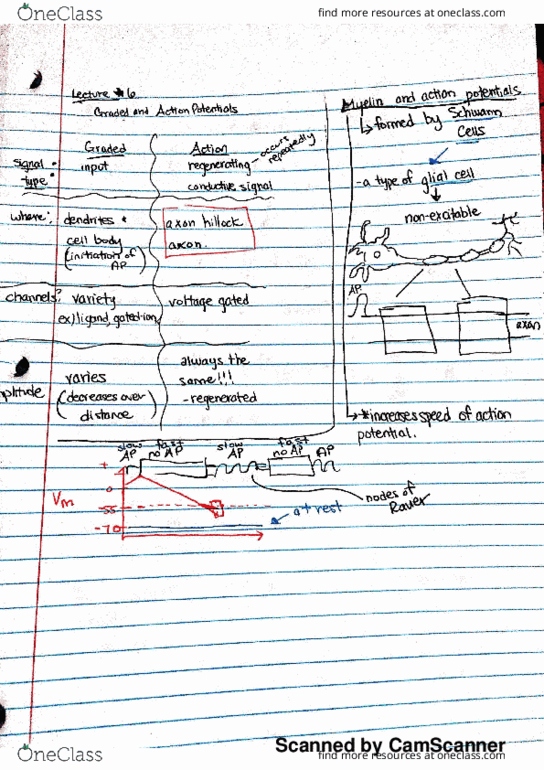 OneClass
find more resources at oneclass.com
Lecture #6
Graded and Action Potentials
Graded
Action
signal type:
input
regenerating - occurs repeatedly
conductive signal
where:
dendrites &
cell body
(initiation of AP)
axon hillock
axon.
channels?
variety
ex) ligand, gated ion
voltage gated
plitude
varies
(decreases over distance)
always the
same!!!
- regenerated
Myelin and action potentials
formed by Schwann Cells
- a type of glial cell
non-excitable
AP
axon
* increases speed of action
potential.
slow AP
fast no AP
slow AP
fast no AP
AP
nodes of Ranver
+
0
Vm
-55
-70
at rest
Scanned by CamScanner
OneClass
find more resources at oneclass.com